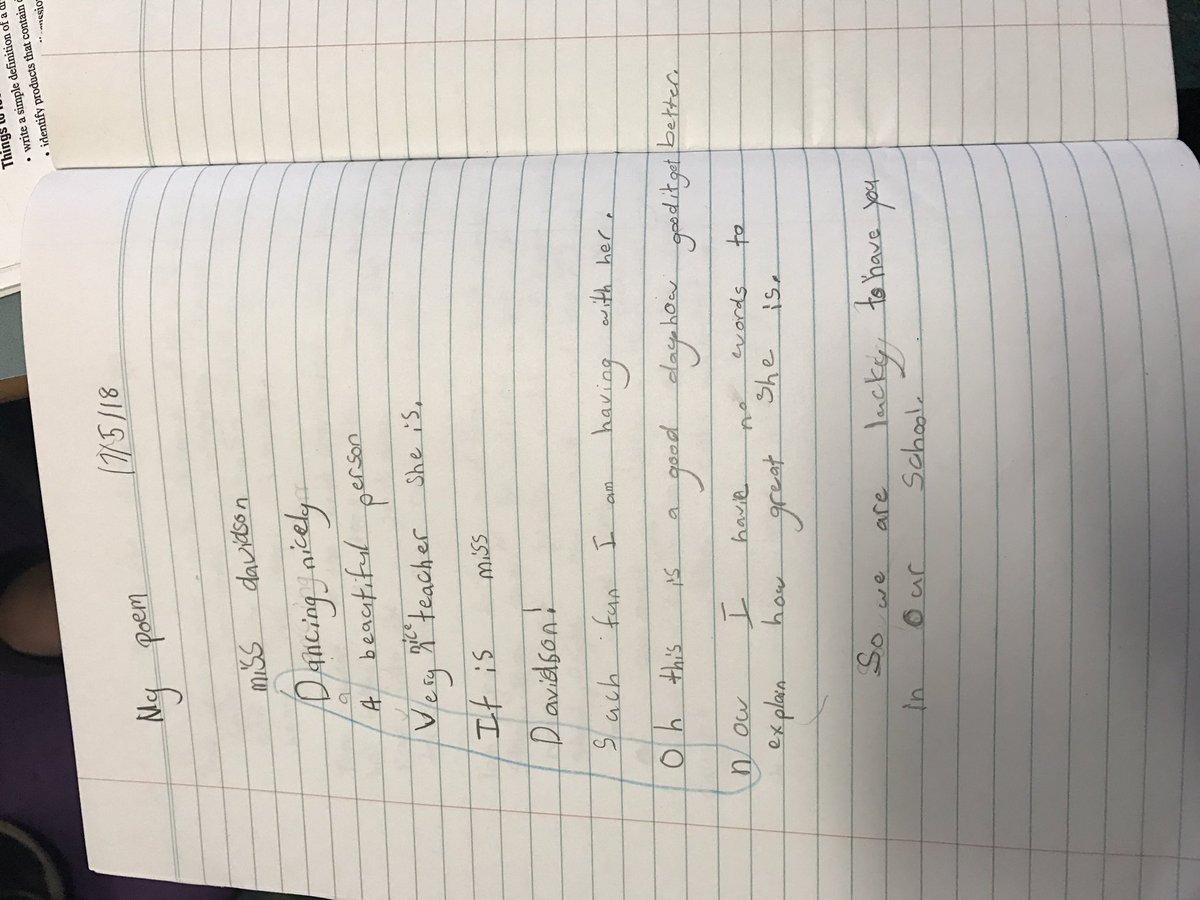 Things to
• write a simple definition of a
• identify products that contain
My poem 17/5/18
miss davidson
Dancing nicely
A beautiful person
Very nice teacher she is.
It is miss
Davidson!
Such fun I am having with her.
Oh this is a good day how good it get better.
now I have no words to
explain how great she is.
So we are lucky to have you
in our school.